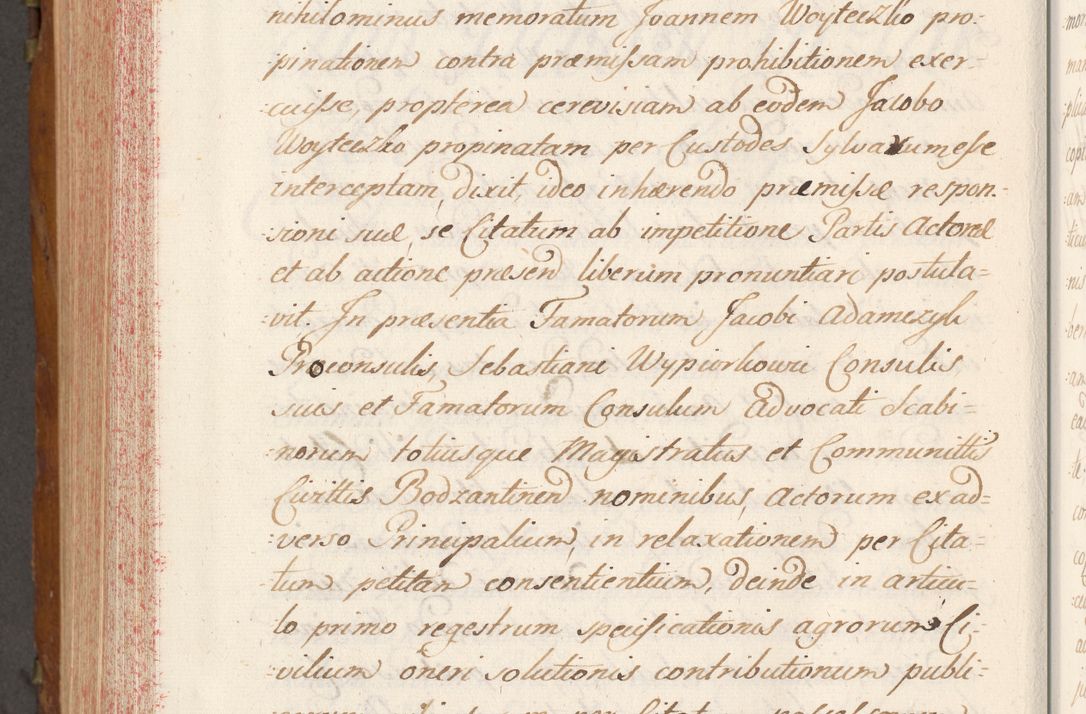 nihilominus memoratum Joannem Woyteczko pro-
pinationem contra præmissam prohibitionem exer-
cuisse, propterea cerevisiam ab eodem Jacobo
Woyteczko propinatam per Custodes Sylvarum esse
interceptam, dixit, ideo inhærendo præmissæ respon-
sioni suæ, se Citatum ab impetitione Partis Actoreæ
et ab actione præsen liberum pronuntiari postula=
vit. In præsentia Famatorum Jacobi Adamczyk
Proconsulis, Sebastiani Wypiorkowi Consulis
suis et Famatorum Consulum Advocati Scabi=
norum totiusque Magistratus et Communittis
Civittis Bodzantinen nominibus, Actorum ex ad=
verso Principalium, in relaxationem per Cita=
tum petitam consentientium, deinde in articu=
lo primo regestrum specificationis agrorum Ci-
vilium oneri solutionis contributionum publi=